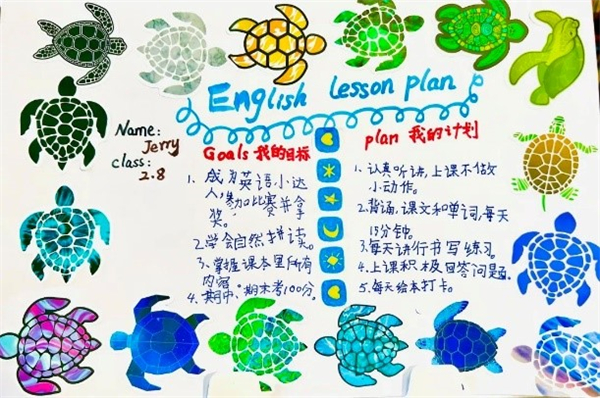 English lesson plan
Name:
Jerry
class:
2.8
Goals 我的目标
1、成为英语小达
人,参加比赛并拿
奖。
2.学会自然拼读。
3、掌握课本里所有
内容
4、期中、期末考100分。
plan 我的计划
1、认真听讲,上课不做
小动作。
2.背诵,课文和单词,每天
15分钟。
3.每天讲行书写练习。
4、上课积极回答问题
5、每天绘本打卡。